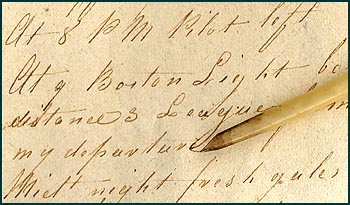 At 8 PM Pilot left
At 9 Boston Light bo
distance 3 Leagues m
my departure
Midt night fresh gales